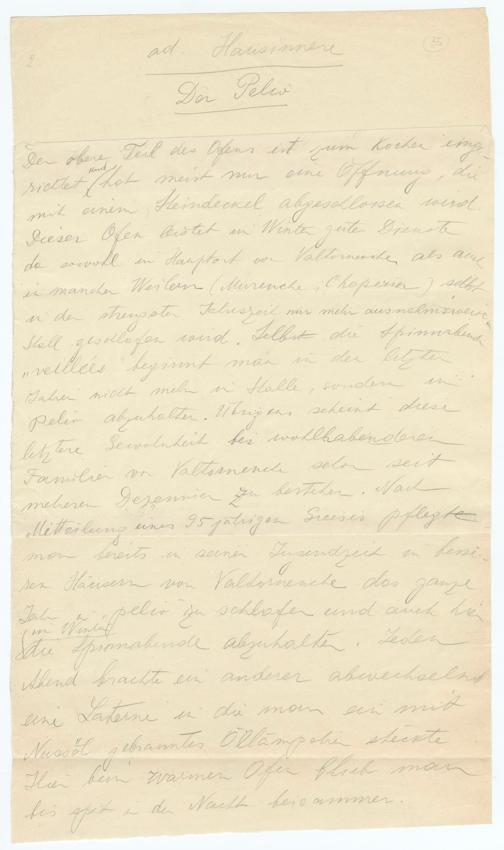 2
25
ad. Hausinnere
Der Pelio
Der obere Teil des Ofens ist zum Kochen einge-
richtet und hat meist nur eine Öffnung, die
mit einem Steindeckel abgeschlossen wird.
Dieser Ofen leistet im Winter gute Dienste
da sowohl im Hauptort von Valtornenche als auch
in manchen Weilern (Murenche, Cheperon) selbst
in der strengsten Jahreszeit nur mehr ausnahmsweise im
Stall geschlafen wird. Selbst die Spinnabende
"veillées" beginnt man in den letzten
Jahren nicht mehr im Stalle, sondern im
pelio abzuhalten. Übrigens scheint diese
letztere Gewohnheit bei wohlhabenderen
Familien von Valtornenche schon seit
mehreren Dezennien zu bestehen. Nach
Mitteilung eines 95 jährigen Greises pflegte
man bereits in seiner Jugendzeit in besse-
ren Häusern von Valtornenche das ganze
Jahr im pelio zu schlafen und auch hier
(im Winter)
die Spinnabende abzuhalten. Jeden
Abend brachte ein anderer abwechselnd
eine Laterne in die man ein mit
Nussöl gebranntes Öllämpchen steckte
Hier beim warmen Ofen blieb man
bis spät in der Nacht beisammen.